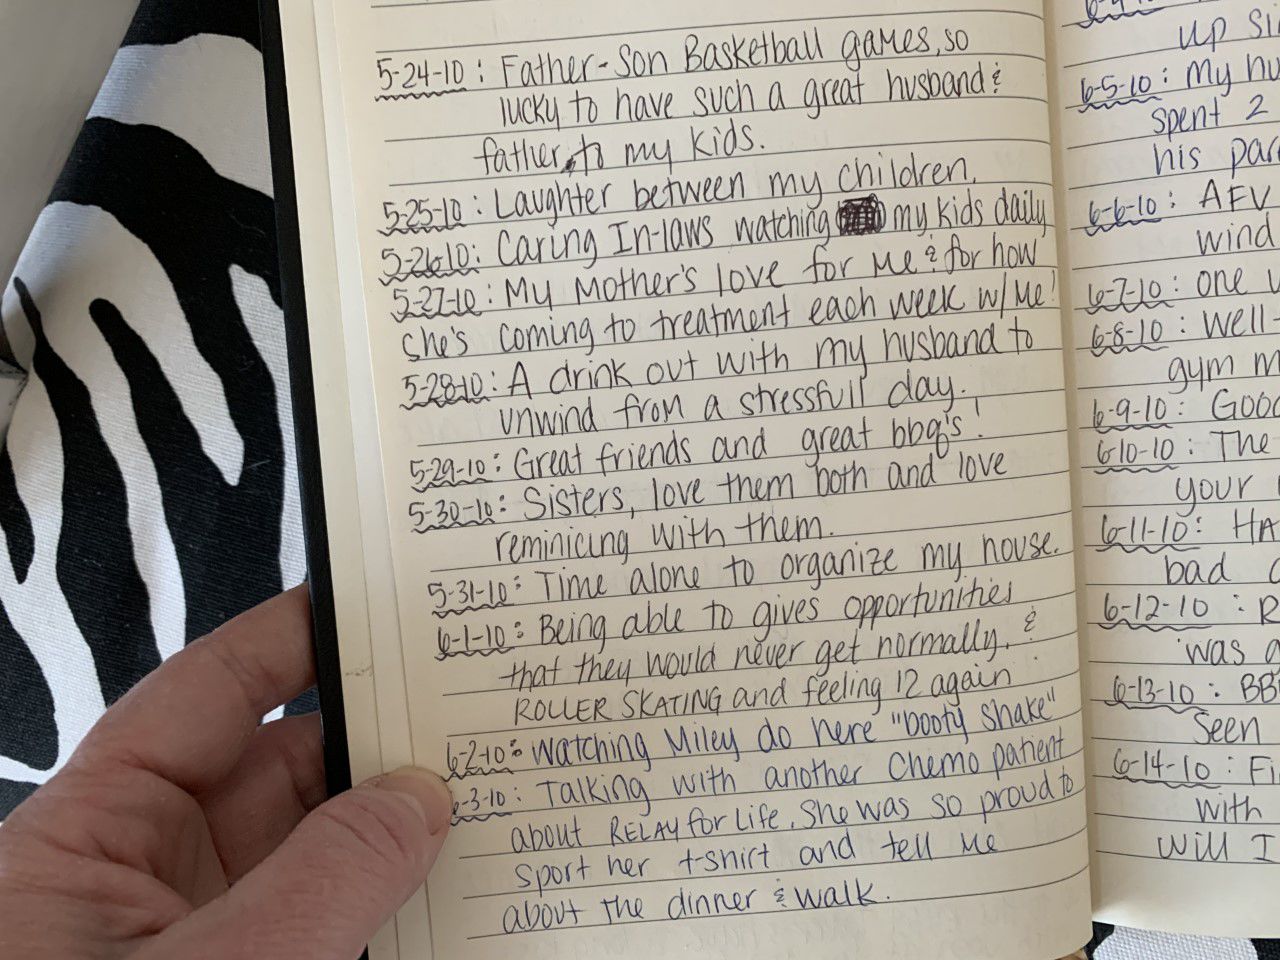 5-24-10 : Father-Son Basketball games, so
lucky to have such a great husband &
father to my kids.
5-25-10 : Laughter between my children.
5-26-10 : Caring In-laws watching my kids daily
5-27-10 : My Mother's love for me & for how
she's coming to treatment each week w/me!
5-28-10 : A drink out with my husband to
unwind from a stressfull day.
5-29-10 : Great friends and great bbq's!
5-30-10 : Sisters, love them both and love
reminicing with them.
5-31-10 : Time alone to organize my house.
6-1-10 : Being able to gives opportunities
that they would never get normally. &
ROLLER SKATING and feeling 12 again
6-2-10 : Watching Miley do here "booty shake"
6-3-10 : Talking with another Chemo patient
about RELAY for Life. She was so proud to
sport her t-shirt and tell me
about the dinner & walk.
up
6-5-10 : My
spent 2
his
6-6-10 : AFV
wind
6-7-10 : one
6-8-10 : Well-
gym
6-9-10 :
6-10-10 : The
your
6-11-10 :
bad
6-12-10 :
was
6-13-10 :
Seen
6-14-10 :
with
will I